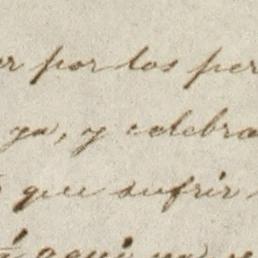 por los per
ya, y celebra
que sufrir
aquí no